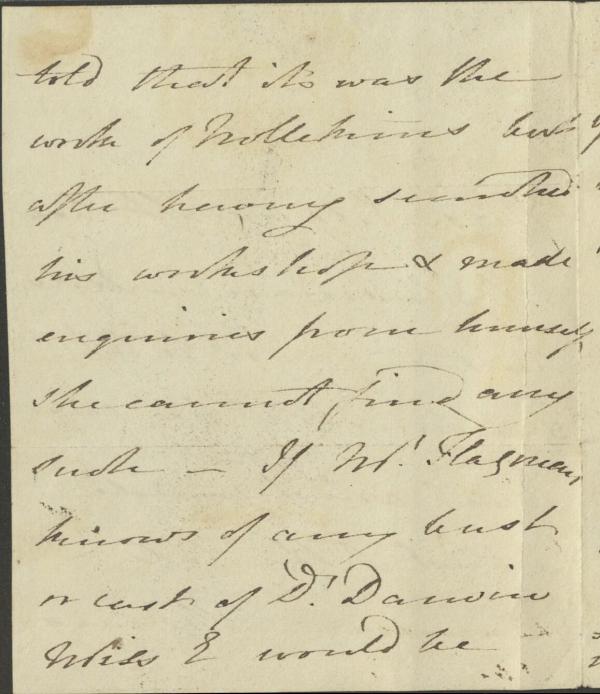 told that it was the
work of Nollekins but
after having searched
his workshop & made
enquiries from himself
she cannot find any
such — If Mr. Flaxman
knows of any bust
or cast of Dr. Darwin
Miss E would be